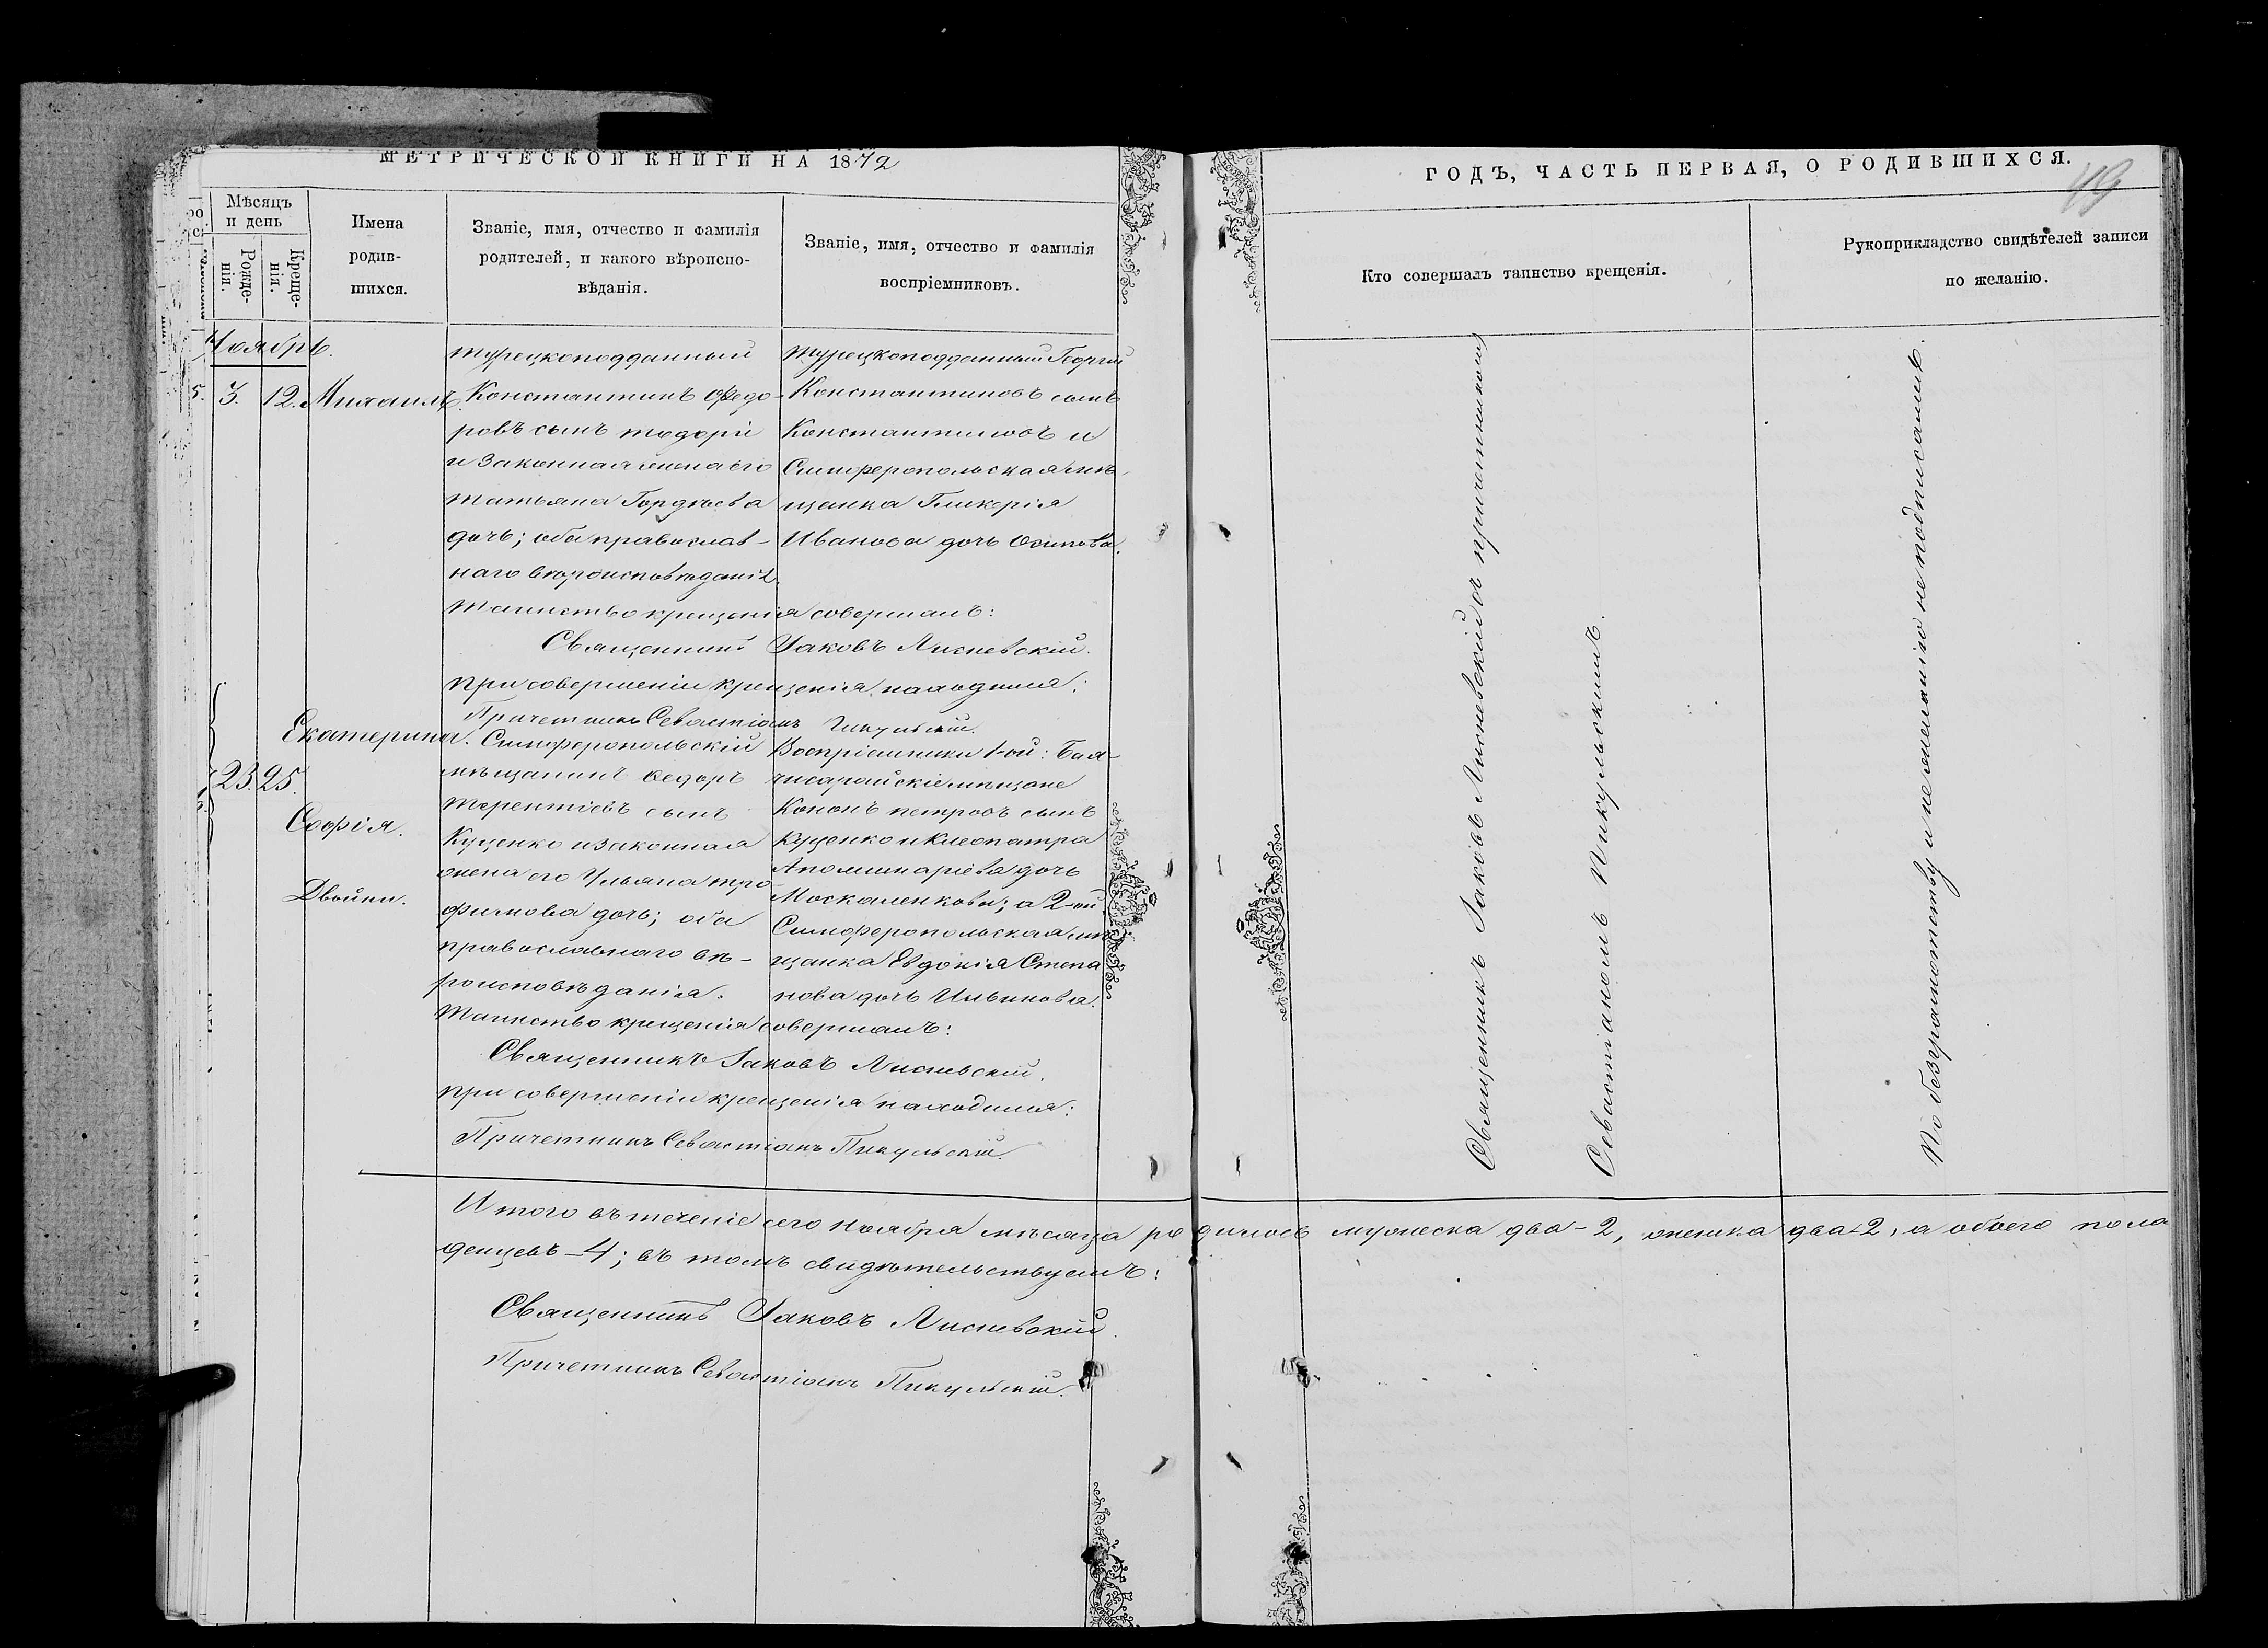 МЕТРИЧЕСКОЙ КНИГИ НА 1872
ГОДЪ, ЧАСТЬ ПЕРВАЯ, О РОДИВШИХСЯ.
49
Мѣсяцъ
и день
Рожде-
нія.
Креще-
нія.
Имена
родив-
шихся.
Званіе, имя, отчество и фамилія
родителей, и какого вѣроиспо-
вѣданія.
Званіе, имя, отчество и фамилія
воспріемниковъ.
Кто совершалъ таинство крещенія.
Рукоприкладство свидѣтелей записи
по желанію.
Ноябрь.
5. 3. 12. Михаилъ.
Турецкоподданный
Константинъ Ѳедо-
ровъ сынъ Тодори
и законная жена его
Татьяна Гордѣева
дочь; оба православ-
наго вѣроисповѣданія.
Турецкоподданный Георгій
Константиновъ сынъ
Константиновъ и
Симферопольская мѣ-
щанка Гликерія
Иванова дочь Осипова.
Таинство крещенія совершалъ:
Священникъ Іаковъ Лисневскій.
При совершеніи крещенія находился:
Причетникъ Севастіанъ Пикульскій.
Екатерина.
23. 25.
Софія.
Двойни.
Симферопольскій
мѣщанинъ Ѳедоръ
Терентіевъ сынъ
Куценко и законная
жена его Ульяна Тро-
фимова дочь; оба
православнаго вѣ-
роисповѣданія.
Воспріемники 1-ой: Бах-
чисарайскіе мѣщане
Кононъ Петровъ сынъ
Куценко и Клеопатра
Аполинаріева дочь
Москаленкова; а 2-ой
Симферопольская мѣ-
щанка Евдокія Степа
нова дочь Ильинова.
Таинство крещенія совершалъ:
Священникъ Іаковъ Лисневскій.
При совершеніи крещенія находился:
Причетникъ Севастіанъ Пикульскій.
Священникъ Іаковъ Лисневскій съ причетникомъ
Севастіаномъ Пикульскимъ.
По безграмотству и нежеланію не подписались.
Итого въ теченіе сего Ноября мѣсяца родилось мужеска два-2, женска два-2, а обоего пола
денцевъ-4; въ томъ свидѣтельствуемъ:
Священникъ Іаковъ Лисневскій.
Причетникъ Севастіанъ Пикульскій.